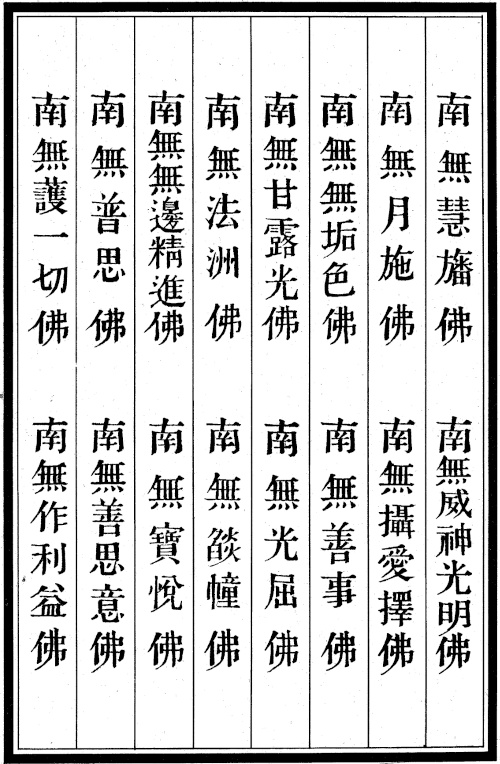 南無慧旛佛
南無威神光明佛
南無月施佛
南無攝愛擇佛
南無無垢色佛
南無善事佛
南無甘露光佛
南無光屈佛
南無法洲佛
南無燄幢佛
南無無邊精進佛
南無寶悅佛
南無普思佛
南無善思意佛
南無護一切佛
南無作利益佛